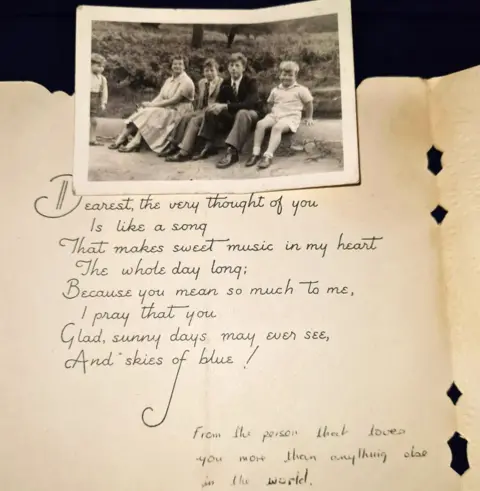 Dearest, the very thought of you
Is like a song
That makes sweet music in my heart
The whole day long;
Because you mean so much to me,
I pray that you
Glad, sunny days may ever see,
And skies of blue!
From the person that loves
you more than anything else
in the world.